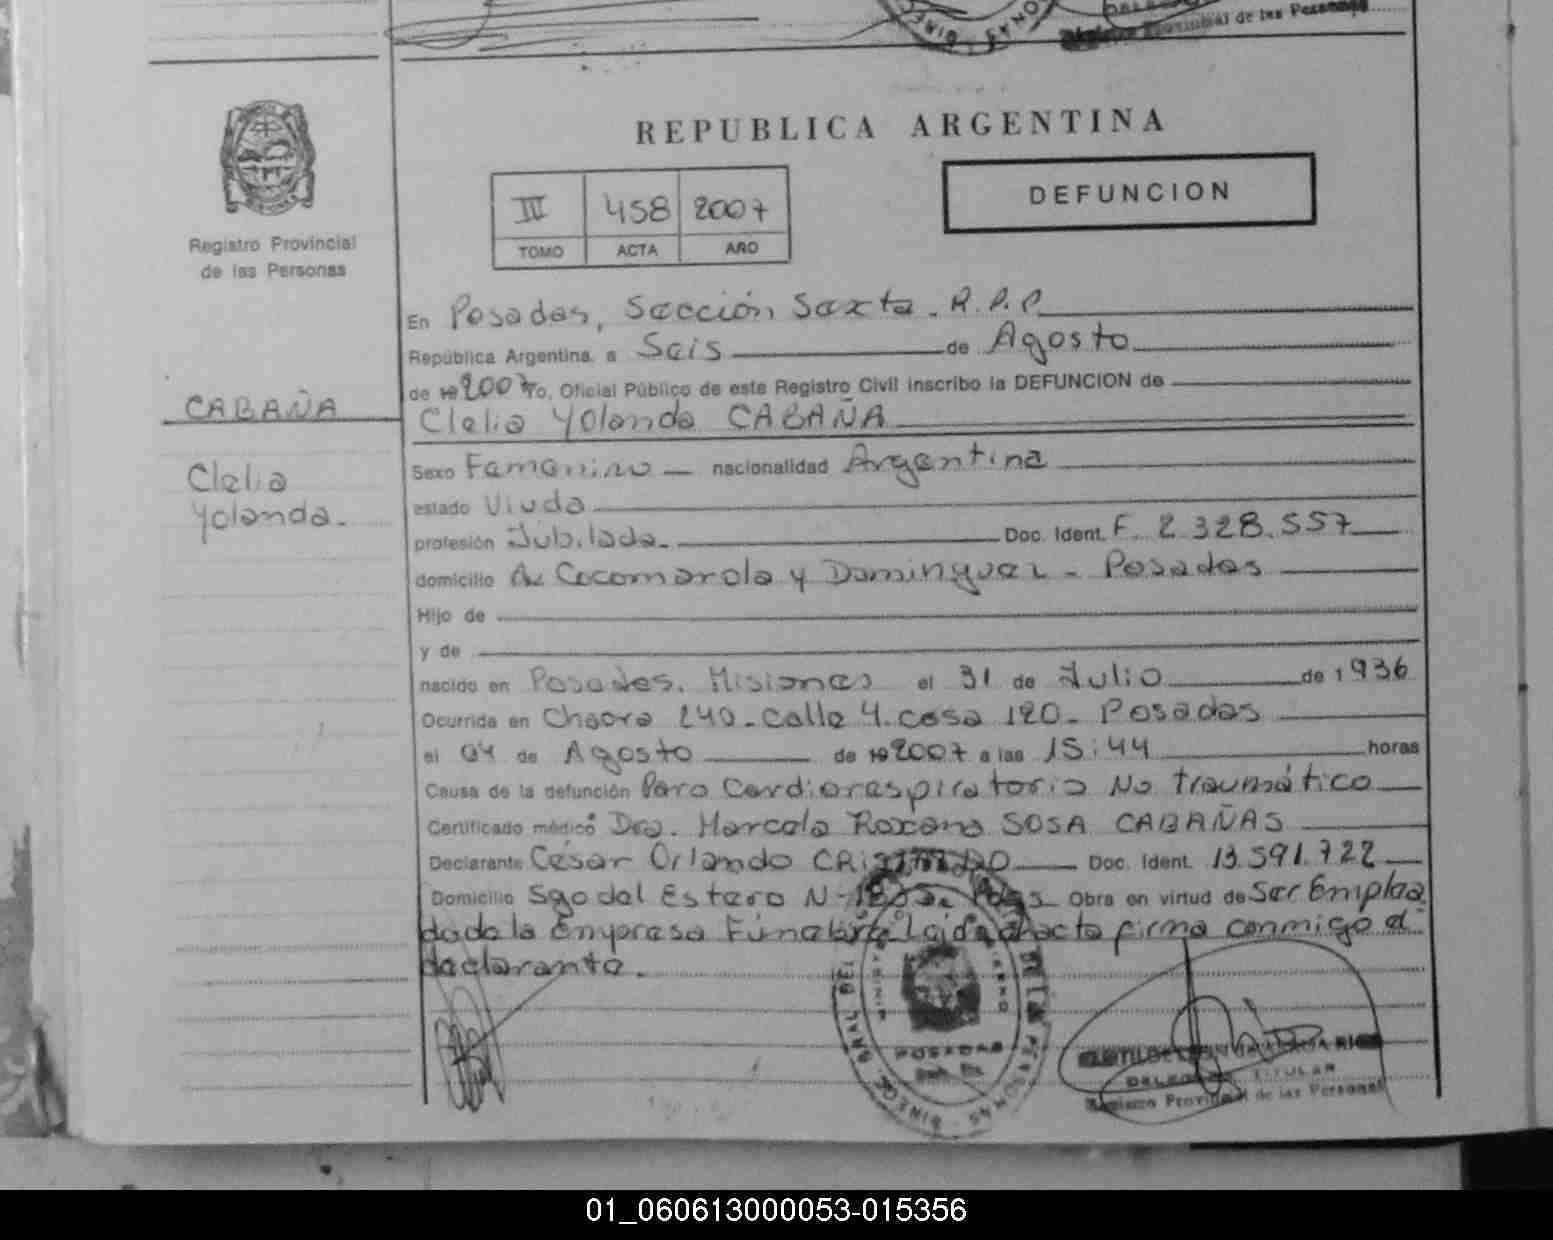 Provincial de las Personas
REPUBLICA ARGENTINA
DEFUNCION
III 458 2007
TOMO ACTA AÑO
Registro Provincial
de las Personas
En Posadas, Sección Sexta. R.P.P.
República Argentina, a Seis de Agosto
de 19 2007 Yo, Oficial Público de este Registro Civil inscribo la DEFUNCION de
CABAÑA
Clelia Yolanda CABAÑA
Clelia
Yolanda.
Sexo Femenino nacionalidad Argentina
estado Viuda
profesión Jubilada. Doc. Ident. F. 2.328.557
domicilio Av Cocomarola y Dominguez - Posadas
Hijo de
y de
nacido en Posadas. Misiones el 31 de Julio de 1936
Ocurrida en Chacra 240 - calle 4. casa 120 - Posadas
el 04 de Agosto de 19 2007 a las 15:44 horas
Causa de la defunción Paro Cardiorespiratorio No traumático
Certificado médico Dra. Marcela Roxana SOSA CABAÑAS
Declarante César Orlando Doc. Ident. 13.591.722
Domicilio Sgo del Estero N- Pdas Obra en virtud de Ser Emplea
do de la Empresa Fúnebre acta firma conmigo el
declarante.
POSADAS
DELEGADA TITULAR
Registro Provincial de las Personas
01_060613000053-015356